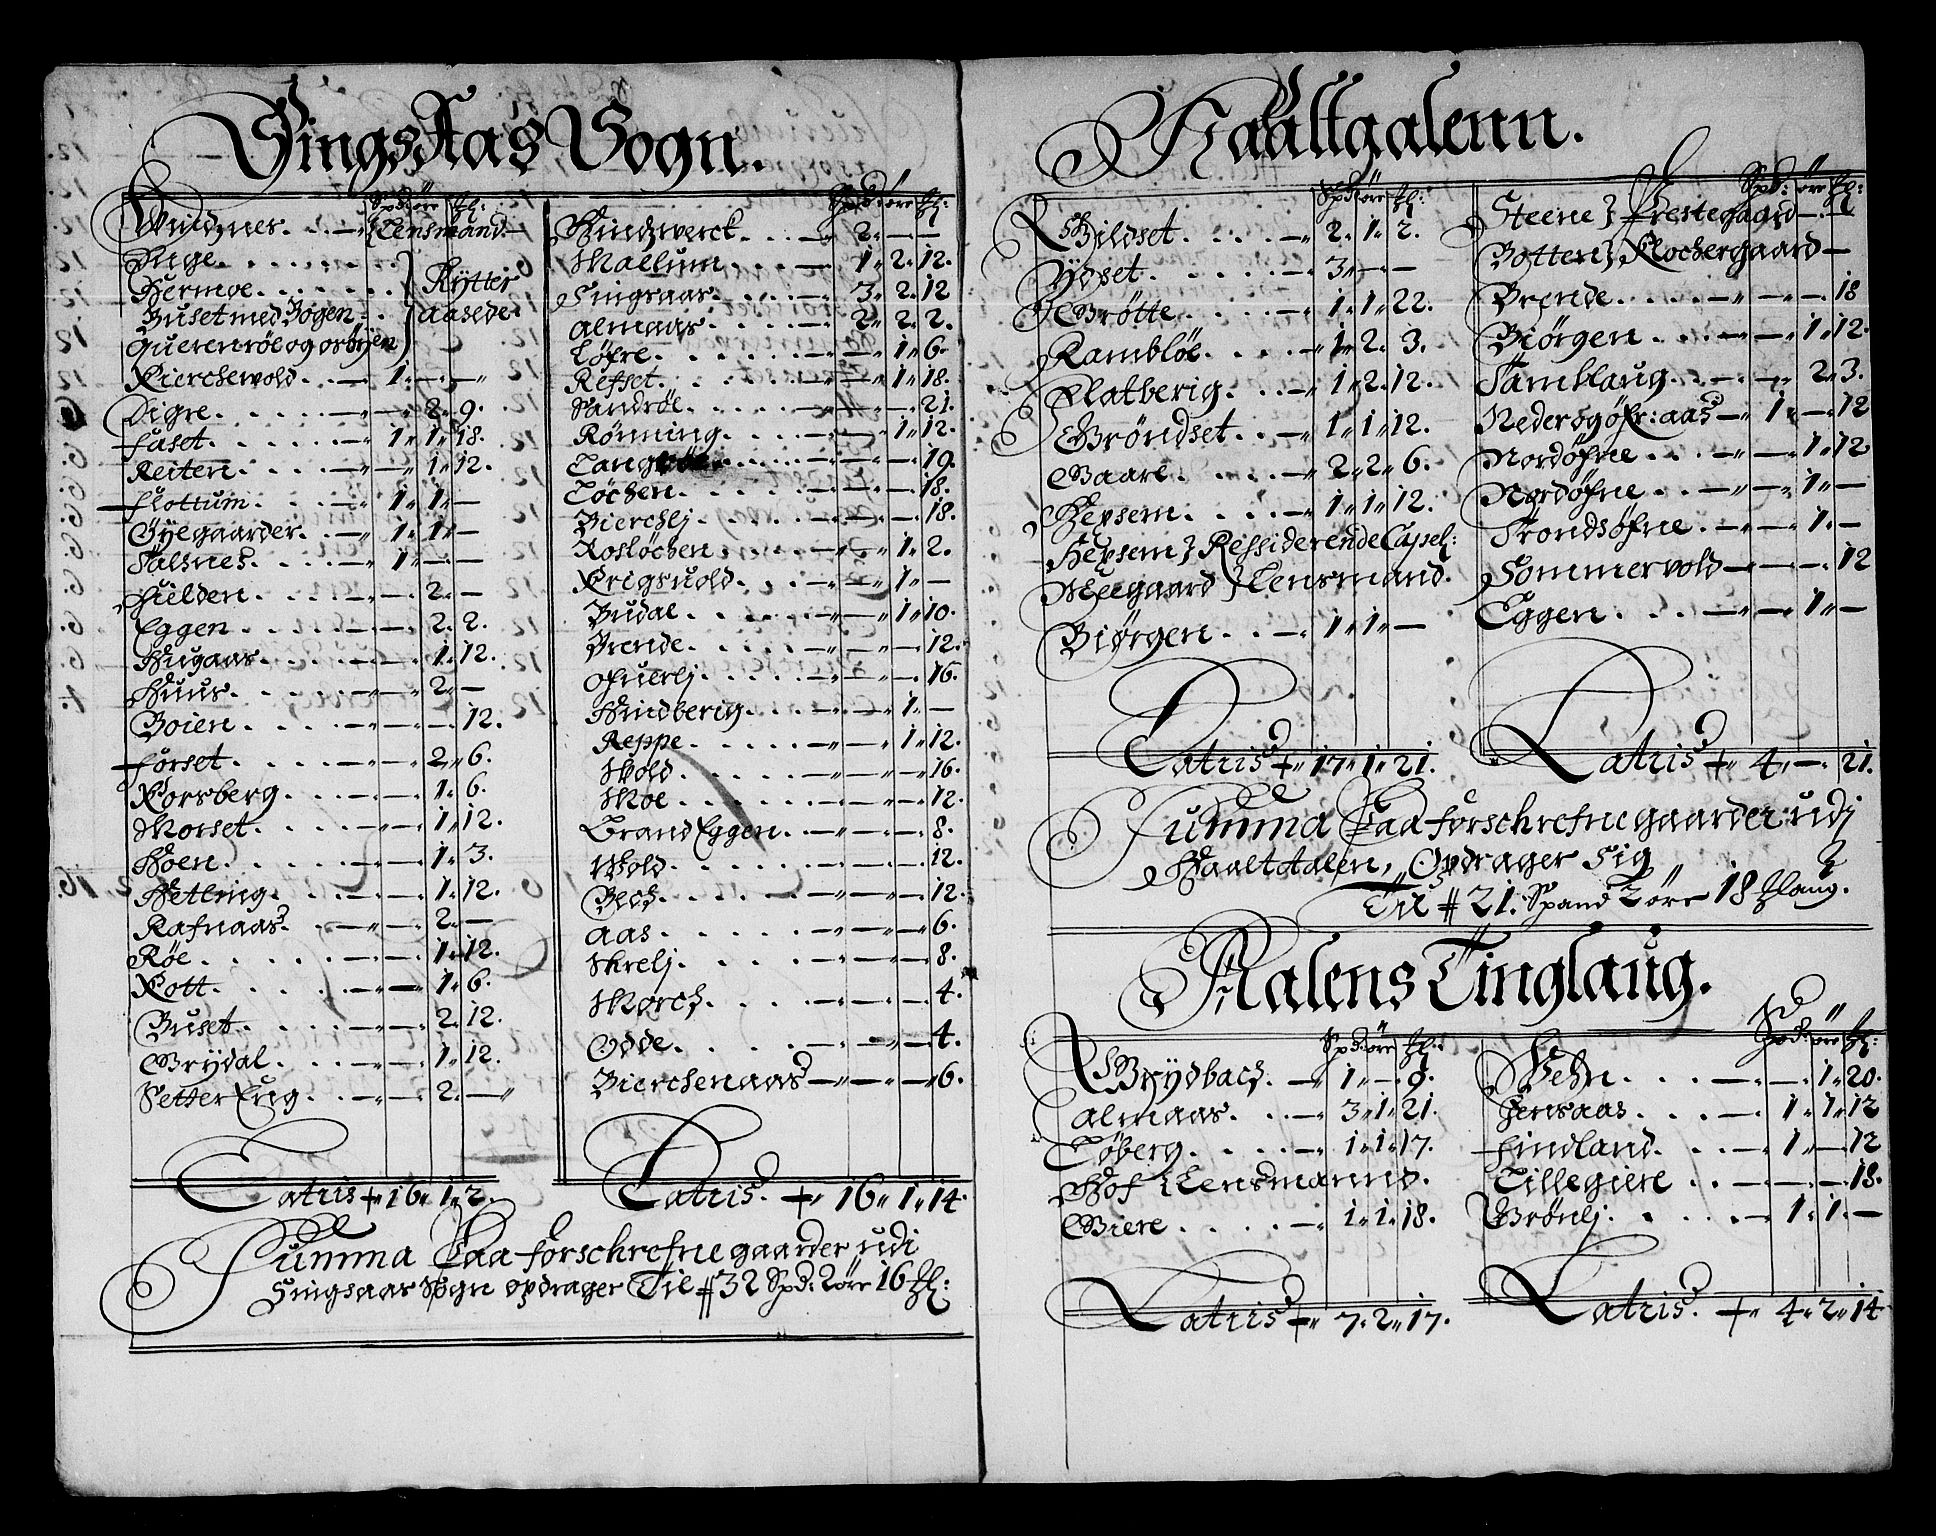 SingsAas Sogn.
Spd: øre Hl:
Vindznes . . — {Lensmand —
Rige . . . . . . }
Hermoe . . . . . } Rÿtter
Buset med Bogen . . } aasede
Querenrøe og osøÿen }
Kierchevold . . — 1 „ — „ — „
Digre . . . . — „ — „ 2 „ 9.
Faset . . . . — „ 1 „ 1 „ 18.
Reiten . . . . — „ — „ 1 „ 12.
Flottum . . . — „ 1 „ 1 „ —
Øÿegaarder . . — „ 1 „ 1 „ —
Talsnes . . . — „ 1 „ — „ —
Hielden . . . — „ — „ 2 „ —
Eggen . . . . — „ — „ 2 „ 2.
Hugaas . . . — „ — „ 1 „ 12.
Huus . . . . — „ — „ 2 „ —
Boien . . . . — „ — „ — „ 12.
Forset . . . . — „ — „ 2 „ 6.
Korsberg . . . — „ — „ 1 „ 6.
Morset . . . — „ — „ 1 „ 12.
Hoen . . . . — „ — „ 1 „ 3.
Hetling . . . — „ — „ 1 „ 12.
Rafnaas . . — „ — „ 2 „ —
Røe . . . . — „ — „ 1 „ 12.
Kott . . . . — „ — „ 1 „ 6.
Buset . . . — „ — „ 2 „ 12.
Grÿdal . . . — „ — „ 1 „ 12.
Setter Erig . . — „ — „ 2 „ — „
Latris + „ 16 „ 1 „ 2.
Spd: øre Hl:
Kindzverck . . . — „ 2 „ — „ —
Mællum . . . — „ 1 „ 2 „ 12.
Singsaas . . . — „ 3 „ 2 „ 12
Almaas . . . — „ 2 „ 2 „ 2.
Løfre . . . . — „ — „ 1 „ 6.
Refset . . . — „ — „ 1 „ 18.
Sandrøe . . . — „ — „ — „ 21.
Rønning . . . — „ — „ 1 „ 12.
. . . — „ — „ — „ 19.
Løchen . . . — „ — „ — „ 18.
Bierchlj . . . — „ — „ — „ 18.
Rosløchen . . — „ — „ 1 „ 2.
Krigsuold . . — „ — „ 1 „ —
Budal . . . — „ — „ 1 „ 10.
Brende . . . — „ — „ — „ 12.
Ofuerlj . . . — „ — „ — „ 16.
Hindberig . . — „ — „ 1 „ —
Reppe . . . — „ — „ 1 „ 12.
Wold . . . . — „ — „ — „ 16.
Moe . . . . — „ — „ — „ 12.
Brand Eggen . . — „ — „ — „ 8.
Wold . . . . — „ — „ — „ 12.
Bech . . . . — „ — „ — „ 12.
Aas . . . . — „ — „ — „ 6.
Skrelj . . . — „ — „ — „ 8.
Morch . . . — „ — „ — „ 4.
Odde . . . . — „ — „ — „ 4.
Bierchenaas — „ — „ — „ 6.
Latris . + „ 16 „ 1 „ 14.
Summa Paa forschrefne gaarder udi
Singsaas Sogn opdrager Til # 32 Spd: 2 øre 16 Hl:
Haaltgalenn.
Spd: øre Hl:
Gildset . . . — „ 2 „ 1 „ 2.
Ÿdset . . . . — „ 3 „ — „ —
Grøtte . . . — „ 1 „ 1 „ 22.
Rambløe . . . — „ 1 „ 2 „ 3.
Flatberig . . — „ 1 „ 2 „ 12.
Grøndset . . — „ 1 „ 1 „ 12.
Gaare . . . — „ 2 „ 2 „ 6.
Hexsem . . . — „ 1 „ 1 „ 12.
Hexsem } Ressiderende Capel:
Meegaard } Lensmand.
Biørgen . . — „ 1 „ 1 „ —
Latris + „ 17 „ 1 „ 21.
Spd: øre Hl:
Steene } Prestegaard — „ —
Botten } Klochergaard —
Brende . . . — „ — „ — „ 18
Biørgen . . . — „ — „ 1 „ 12.
Tamblaug . . — „ — „ 2 „ 3.
Nedersgøfr: aas — „ 1 „ — „ 12
Nordøfne . . . — „ — „ 1 „ 12
Nordøfne . . — „ — „ 1 „ —
Trondsøfne . . — „ — „ 1 „ —
Sommervold — „ — „ — „ 12
Eggen . . . — „ — „ 1 „ —
Latris + „ 4 „ — „ 21.
Summa Paa forschrefne gaarder udj
Haaltdalen, Opdrager Sig
Til # 21. Spand 2 øre 18 Hlaug.
Aalens Tinglaug.
Spd: øre Hl:
Grÿdbach . — „ 1 „ — „ 9.
Almaas . . . — „ 3 „ 1 „ 21.
Løberg . . . — „ 1 „ 1 „ 17.
Hof {Lensmannd.
Giere . . . . — „ 1 „ 1 „ 18.
Latris + „ 7 „ 2 „ 17.
Spd: øre Hl:
Vehn . . . — „ — „ 1 „ 20.
Jensaas . . . — „ 1 „ 1 „ 12
Findland . . . — „ 1 „ — „ 12
Lillegiere . . — „ — „ — „ 18.
Grønlj . . . — „ 1 „ 1 „ —
Latris . + „ 4 „ 2 „ 14